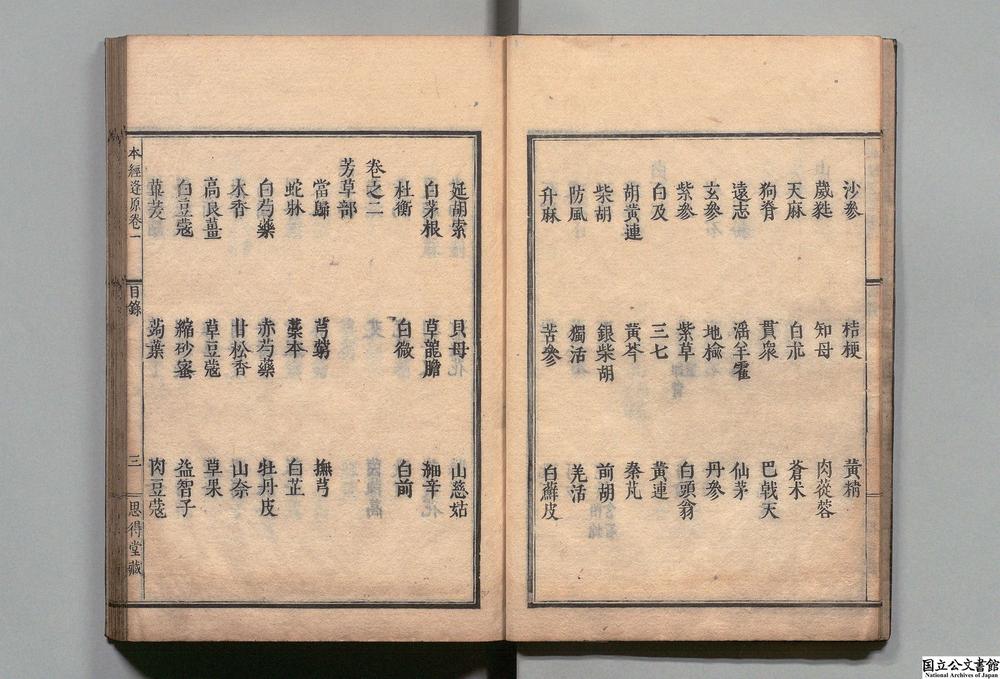 沙參 桔梗 黃精
葳蕤 知母 肉蓯蓉
天麻 白朮 蒼术
狗脊 貫衆 巴戟天
遠志 淫羊霍 仙茅
玄參 地楡 丹參
紫參 紫草 白頭翁
白及 三七 黃連
胡黃連 黃芩 秦艽
柴胡 銀柴胡 前胡
防風 獨活 羌活
升麻 苦參 白蘚皮
延胡索 貝母 山慈姑
白茅根 草龍膽 細辛
杜衡 白薇 白前
卷之二
芳草部
當歸 芎藭 撫芎
蛇牀 藁本 白芷
白芍藥 赤芍藥 牡丹皮
木香 甘松香 山奈
高良薑 草豆蔻 草果
白豆蔻 縮砂蜜 益智子
蓽茇 蒟葉 肉豆蔻
本經逢原卷一 目錄 三 思得堂藏
国立公文書館
National Archives of Japan